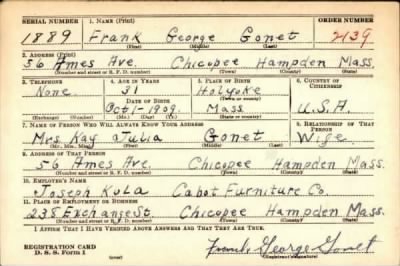 SERIAL NUMBER 1. NAME (Print) ORDER NUMBER
1889 Frank George Gonet 2139
(First) (Middle) (Last)
2. ADDRESS (Print)
56 Ames Ave. Chicopee Hampden Mass.
(Number and street or R. F. D. number) (Town) (County) (State)
3. TELEPHONE 4. AGE IN YEARS 5. PLACE OF BIRTH 6. COUNTRY OF CITIZENSHIP
None 31 Holyoke
(Town or county)
DATE OF BIRTH
Oct-1-1909. Mass. U.S.A.
(Exchange) (Number) (Mo.) (Day) (Yr.) (State or country)
7. NAME OF PERSON WHO WILL ALWAYS KNOW YOUR ADDRESS 8. RELATIONSHIP OF THAT PERSON
Mrs Kay Julia Gonet Wife
(Mr., Mrs., Miss) (First) (Middle) (Last)
9. ADDRESS OF THAT PERSON
56 Ames Ave. Chicopee Hampden Mass.
(Number and street or R. F. D. number) (Town) (County) (State)
10. EMPLOYER'S NAME
Joseph Kula Cabot Furniture Co.
11. PLACE OF EMPLOYMENT OR BUSINESS
238 Exchange St. Chicopee Hampden Mass.
(Number and street or R. F. D. number) (Town) (County) (State)
I AFFIRM THAT I HAVE VERIFIED ABOVE ANSWERS AND THAT THEY ARE TRUE.
REGISTRATION CARD
D. S. S. Form 1 (over) Frank George Gonet
(Registrant's signature)